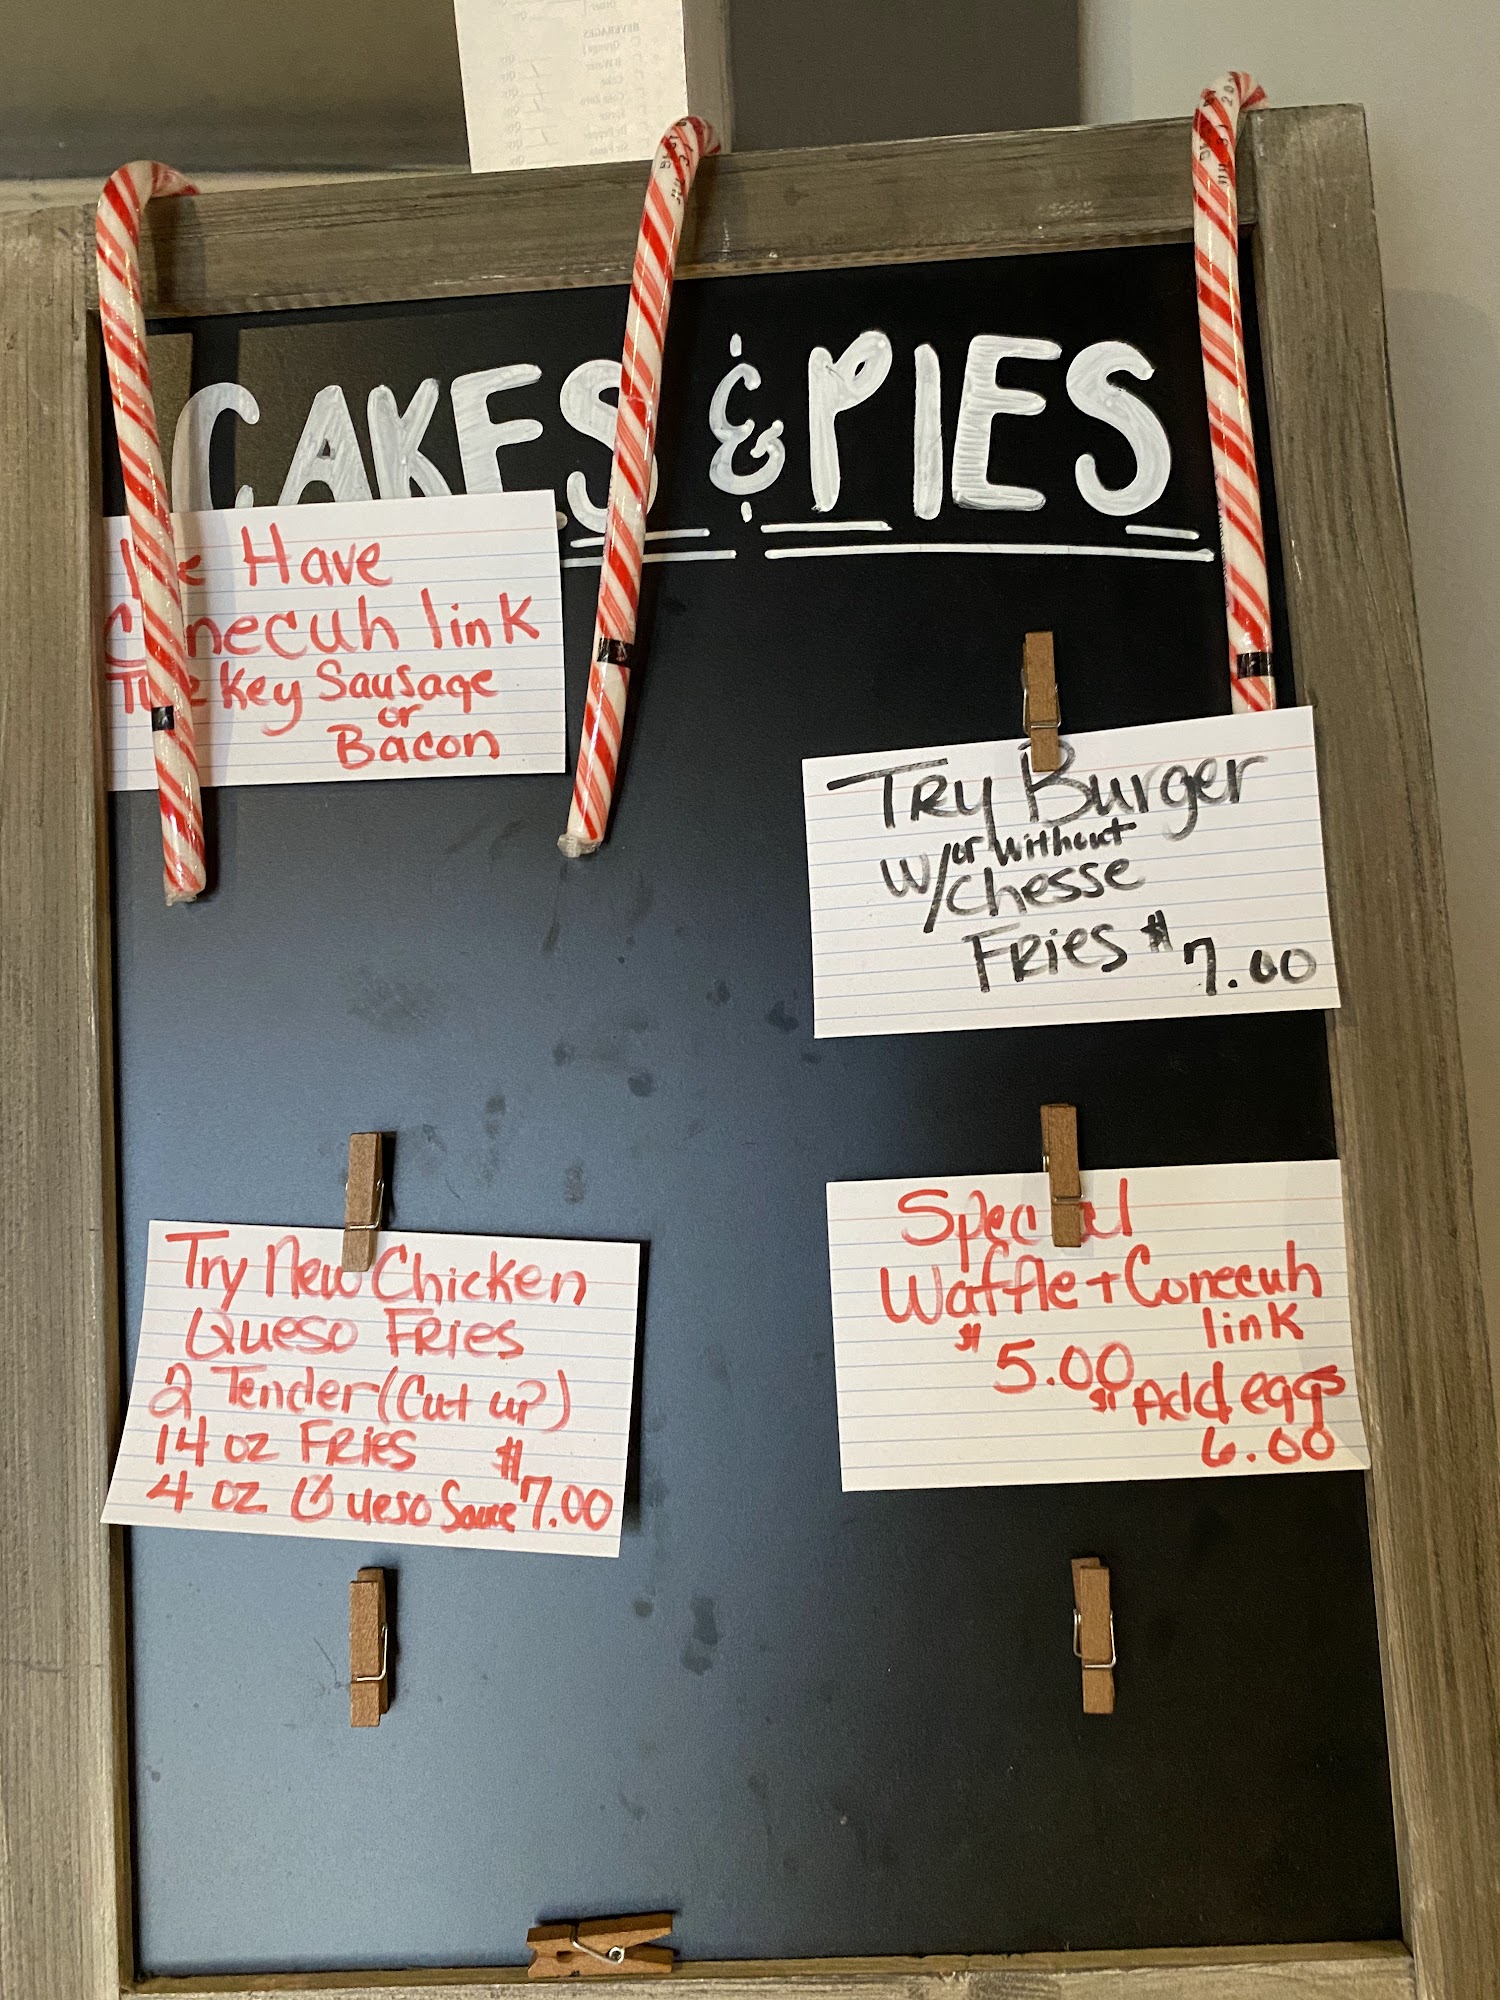 CAKES & PIES
We Have
Conecuh link
Turkey Sausage
or
Bacon
Try Burger
or without
w/chesse
Fries $7.00
Try New Chicken
Queso Fries
2 Tender (Cut up)
14 oz Fries $
4 oz Queso Sauce 7.00
Special
Waffle + Conecuh
link
$5.00
$ Add eggs
6.00